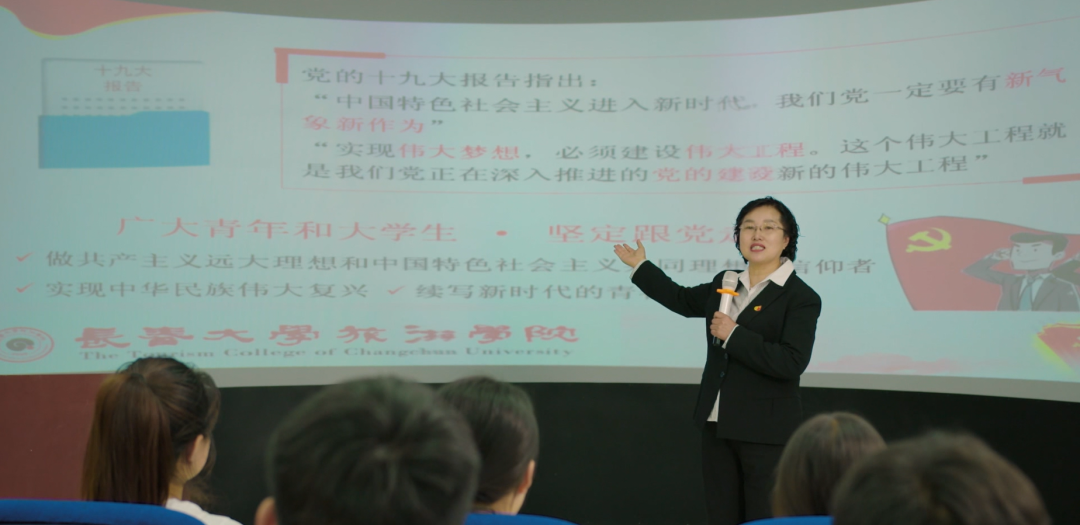 十九大
报告
党的十九大报告指出：
“中国特色社会主义进入新时代。我们党一定要有新气
象新作为”
“实现伟大梦想，必须建设伟大工程。这个伟大工程就
是我们党正在深入推进的党的建设新的伟大工程”
广大青年和大学生 · 坚定跟党走
做共产主义远大理想和中国特色社会主义 同理想 信仰者
实现中华民族伟大复兴 续写新时代的青
長春大學旅游學院
The Tourism College of Changchun University